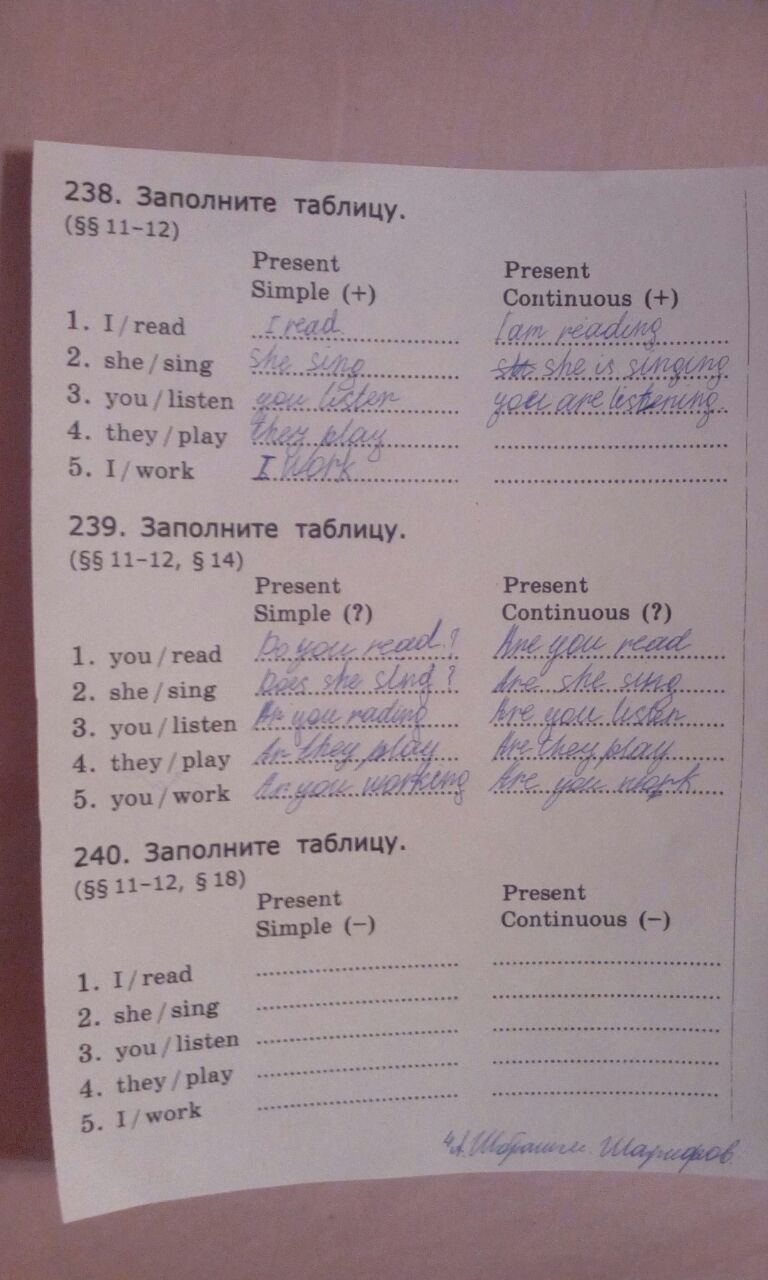 238. Заполните таблицу.
(§§ 11–12)
Present Simple (+) Present Continuous (+)
1. I / read I read. I am reading
2. she / sing She sing she is singing
3. you / listen you listen you are listening.
4. they / play they play
5. I / work I work
239. Заполните таблицу.
(§§ 11–12, § 14)
Present Simple (?) Present Continuous (?)
1. you / read Do you read? Are you read
2. she / sing Does she sing? Are she sing
3. you / listen Ar you rading Are you listen
4. they / play Ar they play Are they play
5. you / work Ar you working Are you work
240. Заполните таблицу.
(§§ 11–12, § 18)
Present Simple (–) Present Continuous (–)
1. I / read
2. she / sing
3. you / listen
4. they / play
5. I / work
Шарифов